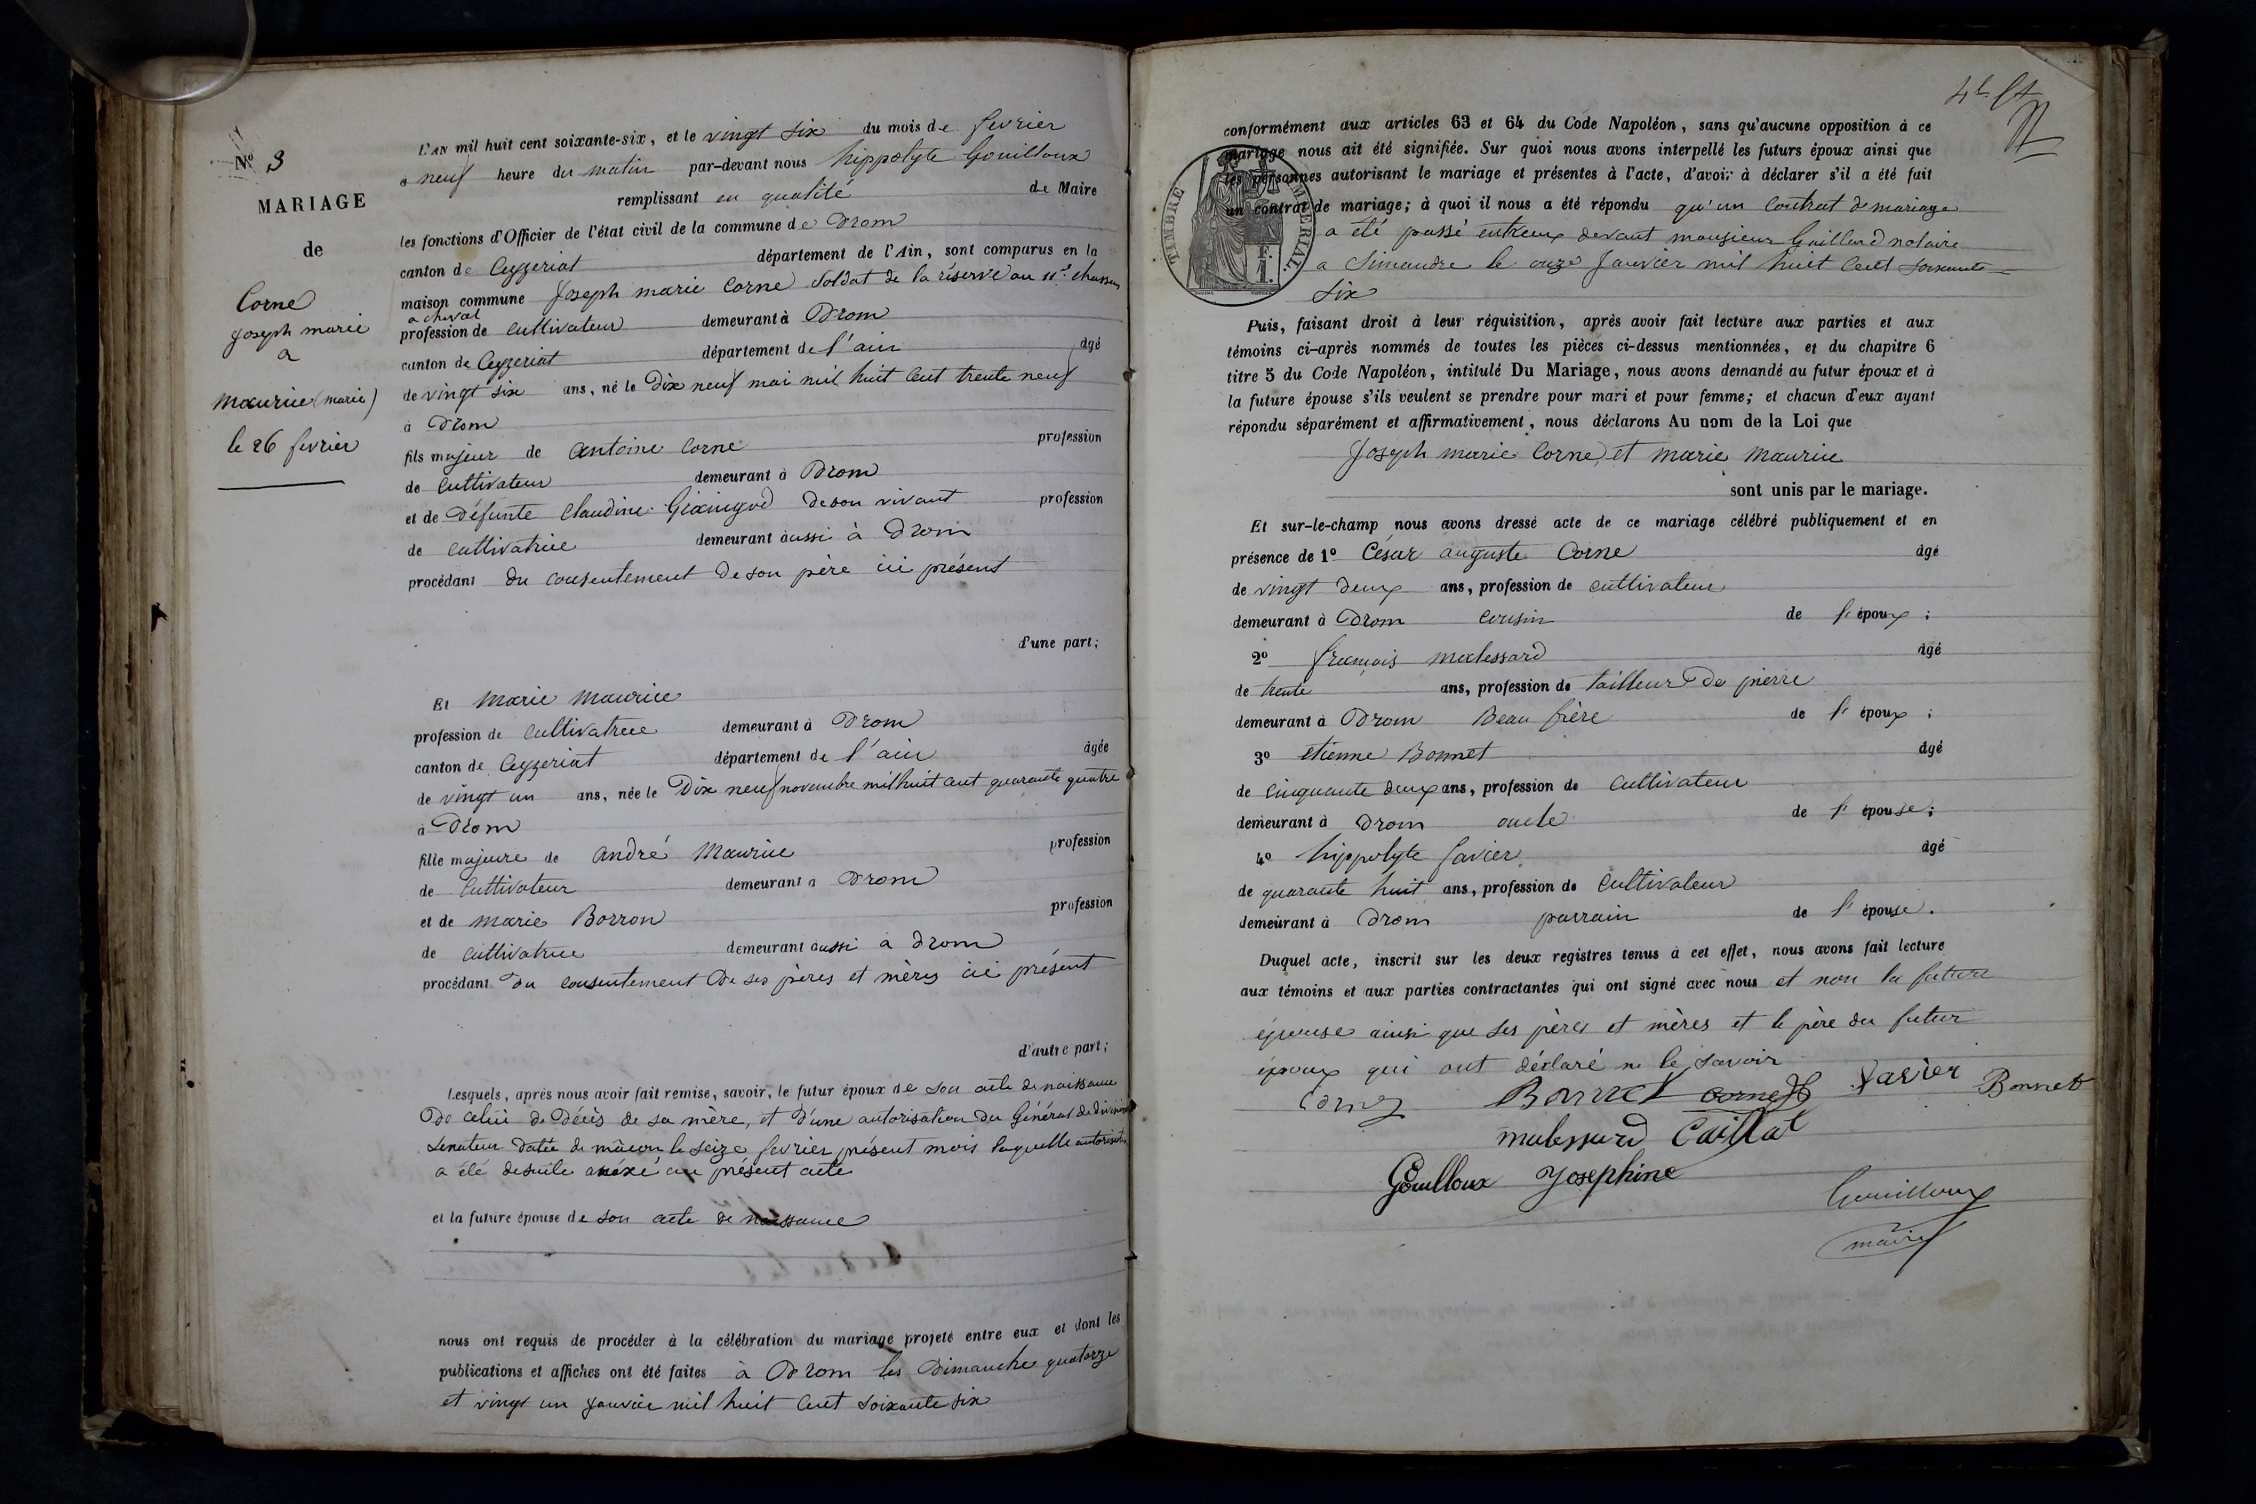 N° 3
MARIAGE
de
Corne
joseph marie
a
maurice (marie)
le 26 fevrier
L'AN mil huit cent soixante-six, et le vingt six du mois de fevrier
a neuf heure du matin par-devant nous hippolyte Gouilloux
remplissant en qualité de Maire
les fonctions d'Officier de l'état civil de la commune de Drom
canton de Ceyzeriat département de l'Ain, sont comparus en la
maison commune Joseph marie Corne soldat de la réserve au 11e chasseurs
a cheval
profession de cultivateur demeurant à Drom
canton de Ceyzeriat département de l'ain âgé
de vingt six ans, né le Dix neuf mai mil huit cent trente neuf
à Drom
fils majeur de antoine Corne profession
de cultivateur demeurant à Drom
et de défunte Claudine de son vivant profession
de cultivatrice demeurant aussi à Drom
procédant du consentement de son père ici présent
d'une part;
Et marie maurice
profession de cultivatrice demeurant à Drom
canton de Ceyzeriat département de l'ain âgée
de vingt un ans, née le Dix neuf novembre mil huit cent quarante quatre
à Drom
fille majeure de andré maurice profession
de cultivateur demeurant a Drom
et de marie Borron profession
de cultivatrice demeurant aussi a drom
procédant du consentement de ses pères et mères ici présent
d'autre part;
Lesquels, après nous avoir fait remise, savoir, le futur époux de son acte de naissance
de celui de décès de sa mère, et d'une autorisation du Général de division
senateur datée de mâcon le seize fevrier présent mois laquelle autorisation
a été desuite anéxé au présent acte
et la future épouse de son acte de naissance
nous ont requis de procéder à la célébration du mariage projeté entre eux et dont les
publications et affiches ont été faites à Drom les Dimanche quatorze
et vingt un janvier mil huit cent soixante six
conformément aux articles 63 et 64 du Code Napoléon, sans qu'aucune opposition à ce
mariage nous ait été signifiée. Sur quoi nous avons interpellé les futurs époux ainsi que
les personnes autorisant le mariage et présentes à l'acte, d'avoir à déclarer s'il a été fait
un contrat de mariage; à quoi il nous a été répondu qu'un contrat de mariage
a été passé entreux devant monsieur Gaillard notaire
a Simandre le onze Janvier mil huit cent soixante
six
TIMBRE IMPERIAL.
F. 1.
Puis, faisant droit à leur réquisition, après avoir fait lecture aux parties et aux
témoins ci-après nommés de toutes les pièces ci-dessus mentionnées, et du chapitre 6
titre 5 du Code Napoléon, intitulé Du Mariage, nous avons demandé au futur époux et à
la future épouse s'ils veulent se prendre pour mari et pour femme; et chacun d'eux ayant
répondu séparément et affirmativement, nous déclarons Au nom de la Loi que
Joseph marie Corne, et marie maurice
sont unis par le mariage.
Et sur-le-champ nous avons dressé acte de ce mariage célébré publiquement et en
présence de 1° César auguste Corne âgé
de vingt deux ans, profession de cultivateur
demeurant à Drom cousin de l' époux ;
2° françois malessard âgé
de trente ans, profession de tailleur de pierre
demeurant à Drom Beau frère de l' époux ;
3° etienne Bonnet âgé
de cinquante deux ans, profession de cultivateur
demeurant à Drom oncle de l' épouse ;
4° hippolyte favier âgé
de quarante huit ans, profession de cultivateur
demeurant à Drom parrain de l' épouse .
Duquel acte, inscrit sur les deux registres tenus à cet effet, nous avons fait lecture
aux témoins et aux parties contractantes qui ont signé avec nous et non la future
épouse ainsi que ses pères et mères et le père du futur
époux qui ont déclaré ne le savoir
Corne Bonnet corne favier Bonnet
malessard Caillat
Gouilloux Josephine
Gouilloux
maire